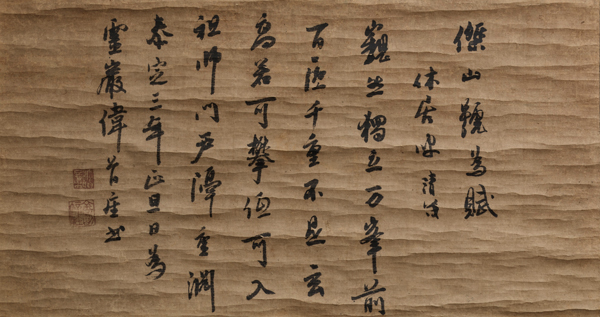 傑山號為賦
休居叟清茂
巍然獨立万峯前
百匝千重不是玄
高若可攀 可入
祖師門戶 重淵
泰定三年正旦日為
靈巖偉首座書